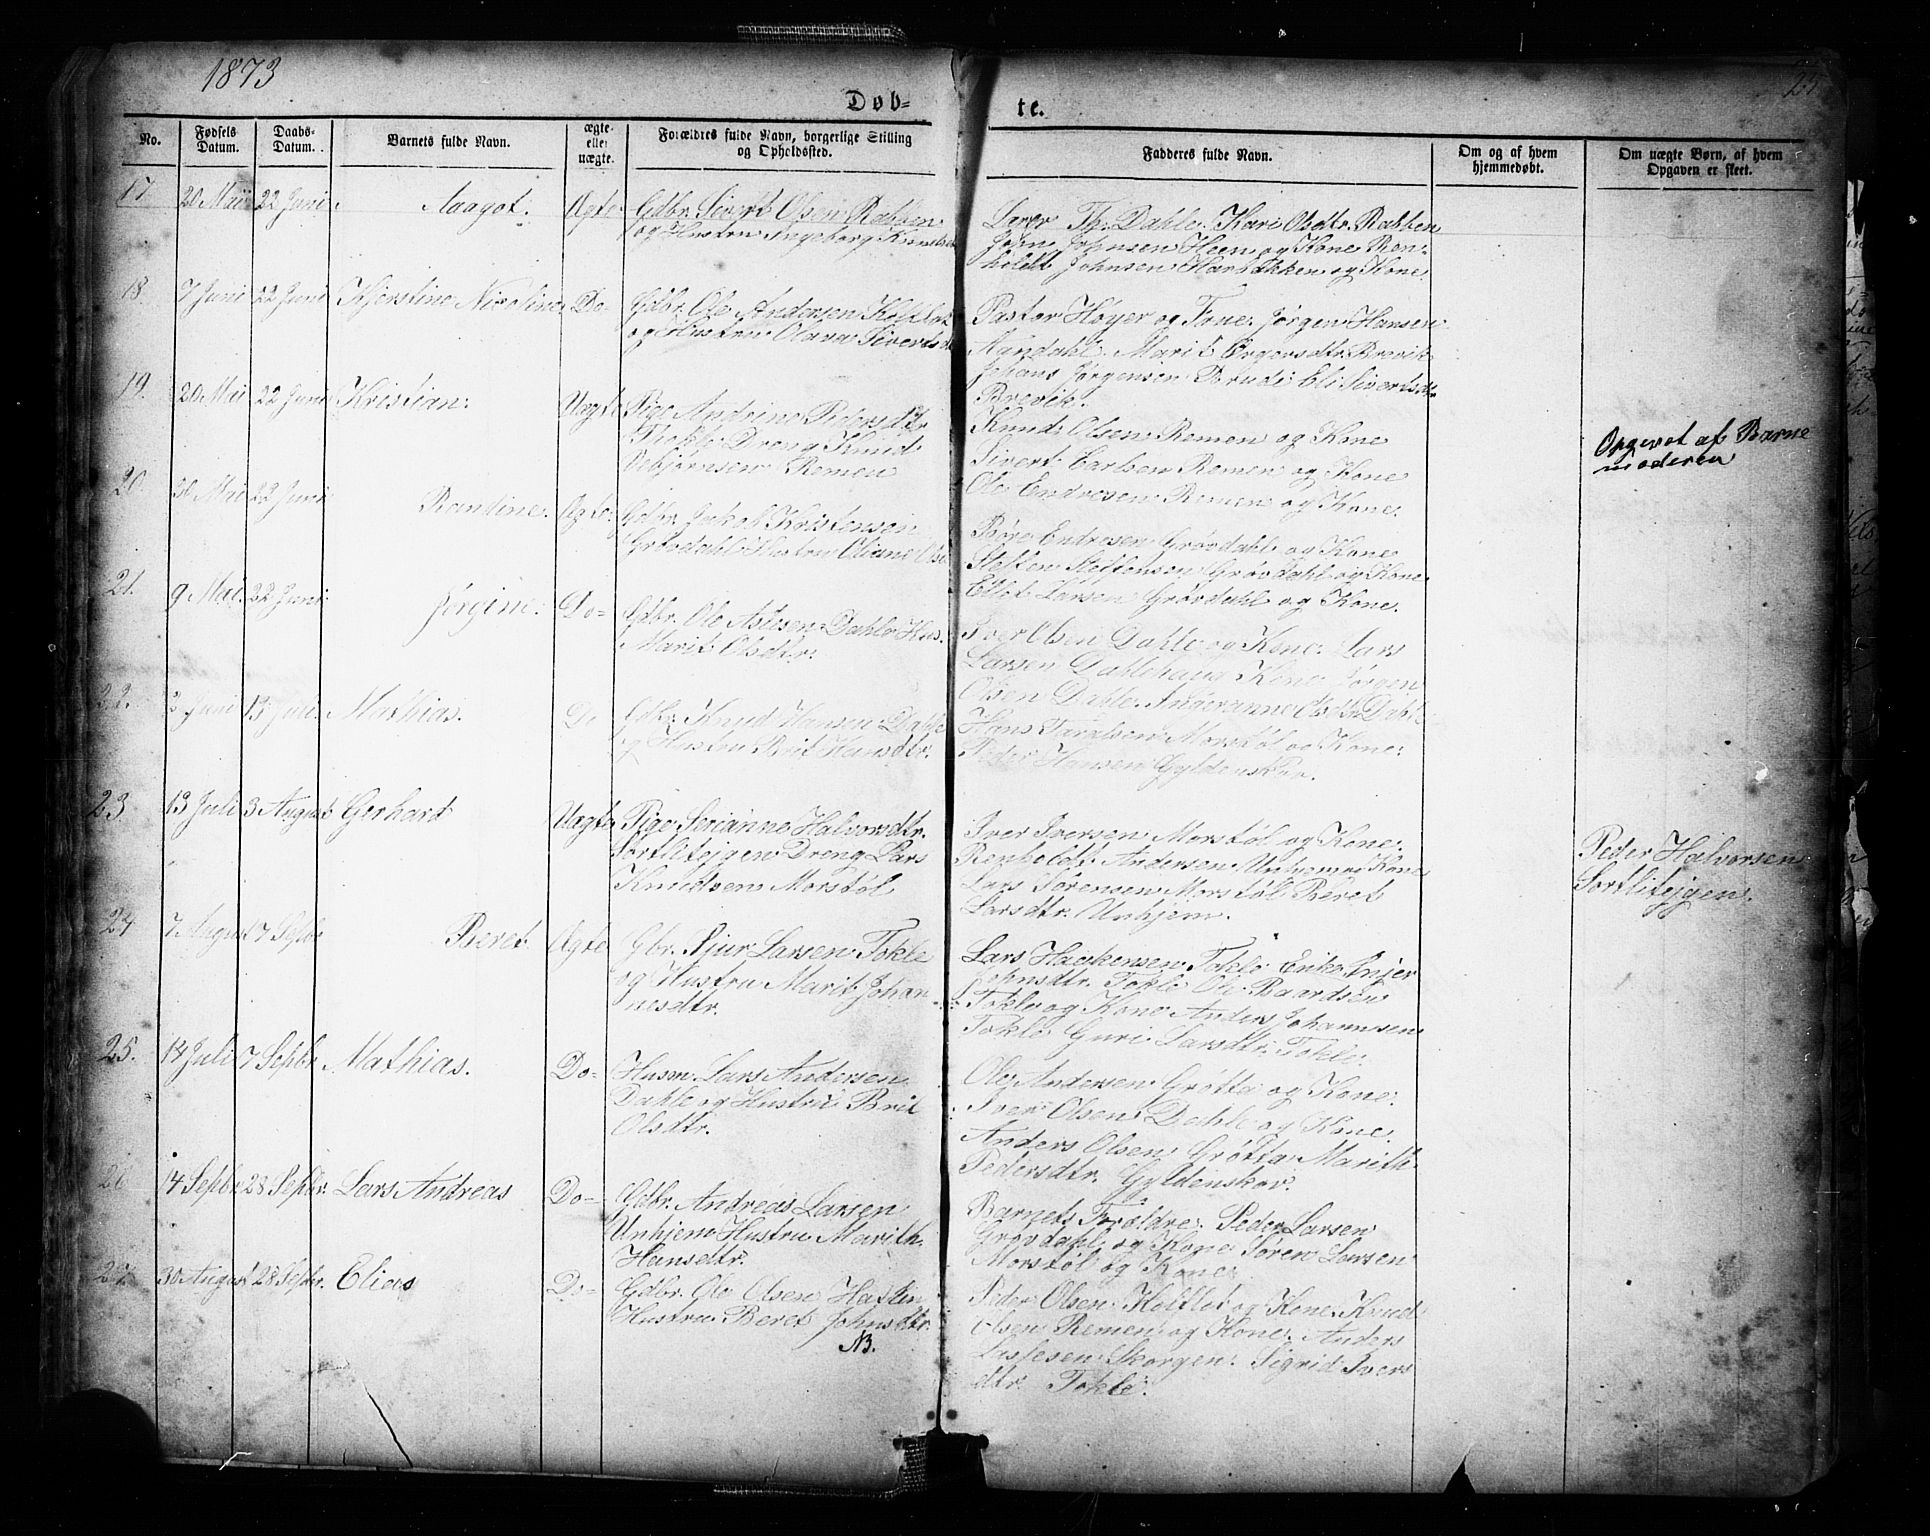 1873
Døb-
te.
No.
Fødsels Datum.
Daabs-Datum.
Barnets fulde Navn.
ægte eller uægte.
Forældres fulde Navn, borgerlige Stilling og Opholdssted.
Fadderes fulde Navn.
Om og af hvem hjemmedøbt.
Om uægte Børn, af hvem Opgaven er skeet.
17. 20 Mai 22 Juni Aagot. Ægte Gdbr. Sivert Olsen Rabben
og Hustru Ingeborg
Lærer Th. Dahle. Kari Olsdtr. Rabben
John Johnsen Heen og Kone Ren-
holdt Johnsen Harbakken og Kone.
18. 7 Juni 22 Juni Kjerstine Nicoline. Do- Gdbr. Ole Andersen
og Hustru Olava
Pastor Høyer og Frue. Jørgen Hansen
Mandahl. Marit Brevik
Johans Jørgensen Eli Sivertsdtr
Brevik.
19. 20 Mai 22 Juni Kristian. Uægte Pige Andrine Pedersdtr
Dreng Knud
Remen
Knud Olsen Remen og Kone
Sivert Carlsen Remen og Kone
Ole Endresen Remen og Kone.
Opgivet af Barne
moderen
20. Mai 22 Juni Randine. Ægte. Gdbr. Jakob Kristensen
Grøvdahl Hustru Oliane
Børe Endresen Grøvdahl og Kone
Steffen Steffensen Grøvdahl og Kone.
Larsen Grøvdahl og Kone.
21. 9 Mai. 22 Juni. Jørgine. Do- Gdbr. Ole Dahle Hus.
Marit Olsdtr.
Iver Olsen Dahle og Kone. Lars
Larsen Dahlehaug Kone. Jørgen
Olsen Dahle. Dahle
22. Juni 13 Juli. Mathias. Do Gdbr. Knud Hansen Dahle
og Hustru Brit Hansdtr.
Hans Morstøl og Kone.
Peder Hansen
23. 13 Juli 3 August Gerhard Uægte Pige Serianne Halvorsdtr.
Sortliteigen Dreng Lars
Knudsen Morstøl
Iver Iversen Morstøl og Kone.
Renholdt Andersen Unhjem og Kone
Lars Sørensen Morstøl Beret
Larsdtr. Unhjem.
Peder Halvorsen
Sortlitejgen.
24. 7 August 7 Beret. Ægte Gbr. Sjur Larsen Tokle
og Hustru Marit Johan-
nesdtr.
Lars Haakensen Tokle
Johnsdtr. Tokle Ole Baardsen
Tokle og Kone Anders Johannsen
Tokle Guri Larsdtr. Tokle.
25. 14 Juli 7 Sepbr. Mathias. Do- Husm. Lars Andersen
Dahle og Hustru Brit
Olsdtr.
Ole Andersen Grøtta og Kone.
Iver Olsen Dahle og Kone.
Anders Olsen Grøtta Marith
Pedersdtr. Gyldenskov.
26 14 Sepbr. 28 Sepbr. Lars Andreas Do- Gdbr. Andreas Larsen
Unhjem Hustru Marith.
Hansdtr.
Barnets Foraldre. Peder Larsen
Grøvdahl og Kone Søren Larsen
Morstøl og Kone.
27. 30 August 28 Sepbr. Elias Do- Gdbr. Ole Olsen
Hustru Beret Johnsdtr.
NB.
Peder Olsen og Kone. Knud
Olsen Remen og Kone. Anders
Skorgen. Sigrid Ivers
dtr. Tokle.